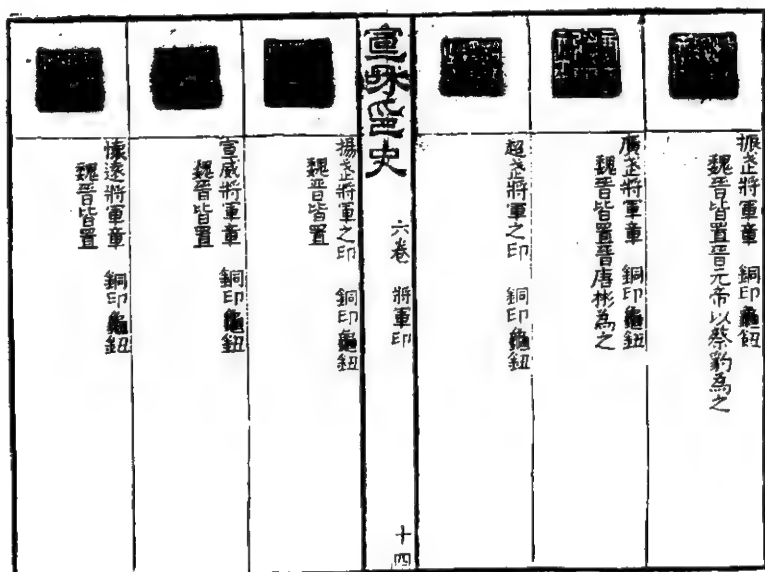 振武將軍章　銅印龜鈕
魏晉皆置晉元帝以蔡豹為之
廣武將軍章　銅印龜鈕
魏晉皆置晉唐彬為之
超武將軍之印　銅印龜鈕
宣和印史
六卷　將軍印
十四
揚武將軍之印　銅印龜鈕
魏晉皆置
宣威將軍章　銅印龜鈕
魏晉皆置
懷遠將軍章　銅印龜鈕
魏晉皆置